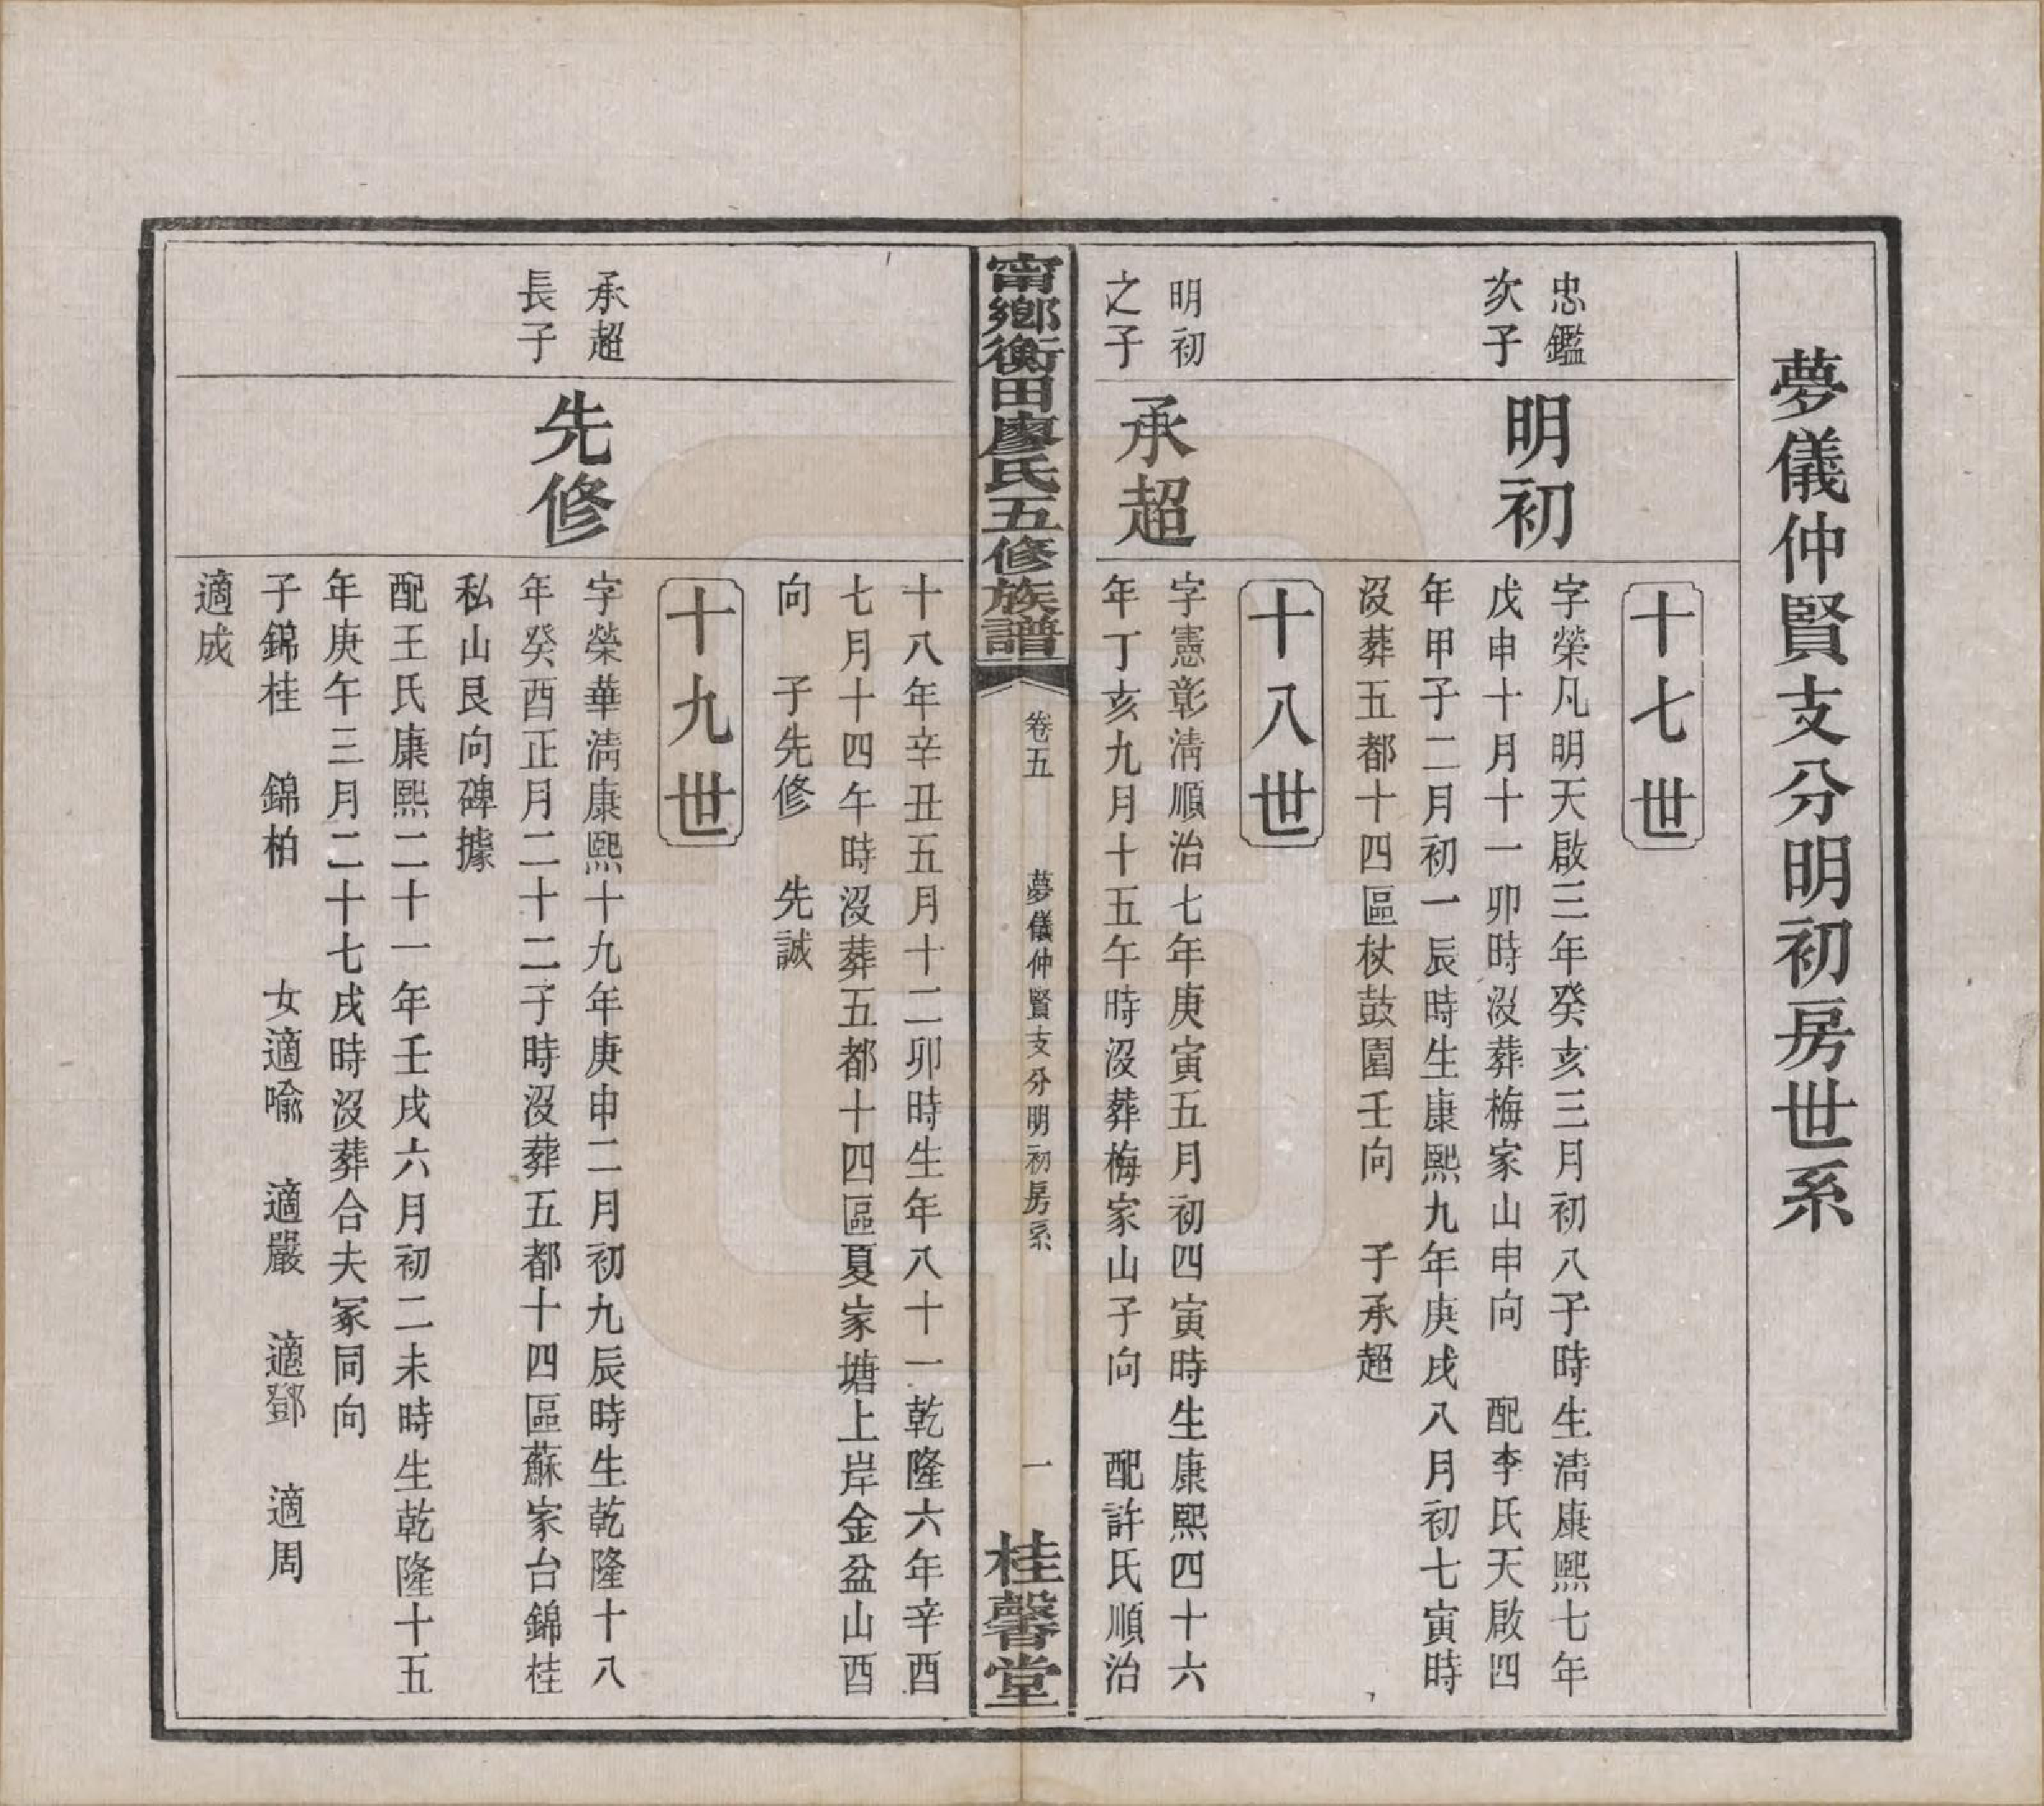 夢儀仲賢支分明初房世系
十七世
忠鑑
次子
明初
字榮凡明天啟三年癸亥三月初八子時生淸康熙七年
戊申十月十一卯時沒葬梅家山申向 配李氏天啟四
年甲子二月初一辰時生康熙九年庚戌八月初七寅時
沒葬五都十四區杖鼓園壬向 子承超
十八世
明初
之子
承超
字憲彰淸順治七年庚寅五月初四寅時生康熙四十六
年丁亥九月十五午時沒葬梅家山子向 配許氏順治
甯鄉衡田廖氏五修族譜
卷五
夢儀仲賢支分明初房系
一
桂馨堂
十八年辛丑五月十二卯時生年八十一乾隆六年辛酉
七月十四午時沒葬五都十四區夏家塘上岸金盆山酉
向 子先修 先誠
十九世
承超
長子
先修
字榮華淸康熙十九年庚申二月初九辰時生乾隆十八
年癸酉正月二十二子時沒葬五都十四區蘇家台錦桂
私山艮向碑據
配王氏康熙二十一年壬戌六月初二未時生乾隆十五
年庚午三月二十七戌時沒葬合夫冢同向
子錦桂 錦柏 女適喻 適嚴 適鄧 適周
適成